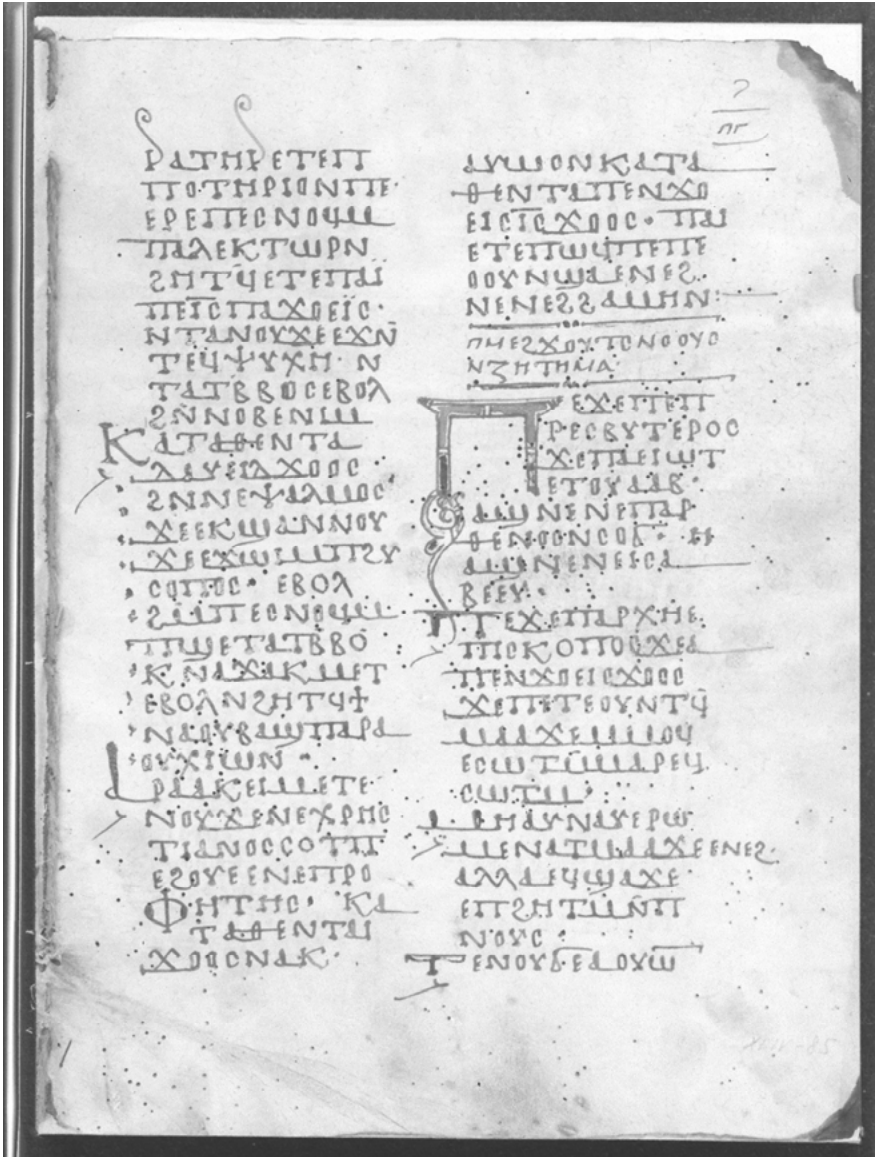 ⲡⲅ
ⲣⲁⲧⲏⲣ ⲉⲧⲉⲡ
ⲡⲟⲧⲏⲣⲓⲟⲛ ⲡⲉ·
ⲉⲣⲉⲡⲉⲥⲛⲟϥ ⲙ
ⲡⲁⲗⲉⲕⲧⲱⲣ ⲛ
ϩⲏⲧϥ ⲉⲧⲉⲡⲁⲓ̈
ⲡⲉ ⲓ̅ⲥ̅ ⲡⲁϫⲟⲉⲓ̈ⲥ·
ⲛⲧⲁⲛⲟⲩϫⲉ ⲉϫⲛ̄
ⲧⲉϥⲯⲩⲭⲏ· ⲛ
ⲧⲁⲧⲃ̄ⲃⲟⲥ ⲉⲃⲟⲗ
ϩⲛ̄ⲛⲟⲃⲉ ⲛⲓⲙ
ⲕⲁⲧⲁⲑⲉ ⲛⲧⲁ
ⲇⲁⲩⲉⲓⲇ ϫⲟⲟⲥ
ϩⲛ ⲛⲉⲯⲁⲗⲙⲟⲥ
ϫⲉ ⲉⲕϣⲁⲛⲛⲟⲩ
ϫⲉ ⲉϫⲱⲓ ⲙⲡϩⲩ
ⲥⲟⲡⲟⲥ· ⲉⲃⲟⲗ
ϩⲙ ⲡⲉⲥⲛⲟϥ ⲙ
ⲡϣⲉ ⲧⲁⲧⲃ̄ⲃⲟ
ⲕⲛⲁϫⲁⲕⲙⲉⲧ
ⲉⲃⲟⲗ ⲛϩⲏⲧϥ ϯ
ⲛⲁⲟⲩⲃⲁϣ ⲡⲁⲣⲁ
ⲟⲩⲭⲓⲱⲛ
ⲁⲣⲁ ⲁⲕⲉⲓⲙⲉ ⲧⲉ
ⲛⲟⲩ ϫⲉ ⲛⲉⲭⲣⲏⲥ
ⲧⲓⲁⲛⲟⲥ ⲥⲟⲧⲡ
ⲉϩⲟⲩⲉ ⲉⲛⲉⲡⲣⲟ
ⲫⲏⲧⲏⲥ· ⲕⲁ
ⲧⲁⲑⲉ ⲛⲧⲁⲓ
ϫⲟⲟⲥ ⲛⲁⲕ·
ⲁⲩⲱ ⲟⲛ ⲕⲁⲧⲁ
ⲑⲉ ⲛⲧⲁⲡⲉⲛϫⲟ
ⲉⲓⲥ ⲓ̅ⲥ̅ ϫⲟⲟⲥ· ⲡⲁⲓ
ⲉⲧⲉⲡⲱϥ ⲡⲉ ⲡⲉ
ⲟⲟⲩ ⲛϣⲁⲉⲛⲉϩ
ⲛⲉⲛⲉϩ ϩⲁⲙⲏⲛ·
ⲡⲙⲉϩϫⲟⲩⲧⲥⲛⲟⲟⲩⲥ
ⲛⲍⲏⲧⲏⲙⲁ
ⲡⲉϫⲉ ⲡⲉⲡ
ⲣⲉⲥⲃⲩⲧⲉⲣⲟⲥ
ϫⲉ ⲡⲁⲉⲓⲱⲧ
ⲉⲧⲟⲩⲁⲁⲃ·
ⲁϣ ⲛⲉ ⲛⲉⲡⲁⲣ
ⲑⲉⲛⲟⲥ ⲛⲥⲟϭ· ⲏ
ⲁϣ ⲛⲉ ⲛⲉⲓⲥⲁ
ⲃⲉⲉⲩ·
ⲡⲉϫⲉ ⲡⲁⲣⲭⲏⲉ
ⲡⲓⲥⲕⲟⲡⲟⲥ ϫⲉ ⲁ
ⲡⲉⲛϫⲟⲉⲓⲥ ϫⲟⲟⲥ
ϫⲉ ⲡⲉⲧⲉⲟⲩⲛⲧϥ̄
ⲙⲁⲁϫⲉ ⲙⲙⲟϥ
ⲉⲥⲱⲧⲙ̄ ⲙⲁⲣⲉϥ
ⲥⲱⲧⲙ·
ⲙⲏ ⲁⲩⲛⲁⲩ ⲉⲣⲱ
ⲙⲉ ⲛⲁⲧⲙⲁⲁϫⲉ ⲉⲛⲉϩ·
ⲁⲗⲗⲁ ⲉϥϣⲁϫⲉ
ⲉⲡϩⲏⲧ ⲙⲛ̄ ⲡ
ⲛⲟⲩⲥ·
ⲧⲉⲛⲟⲩϭⲉ ⲁⲟⲩⲱ